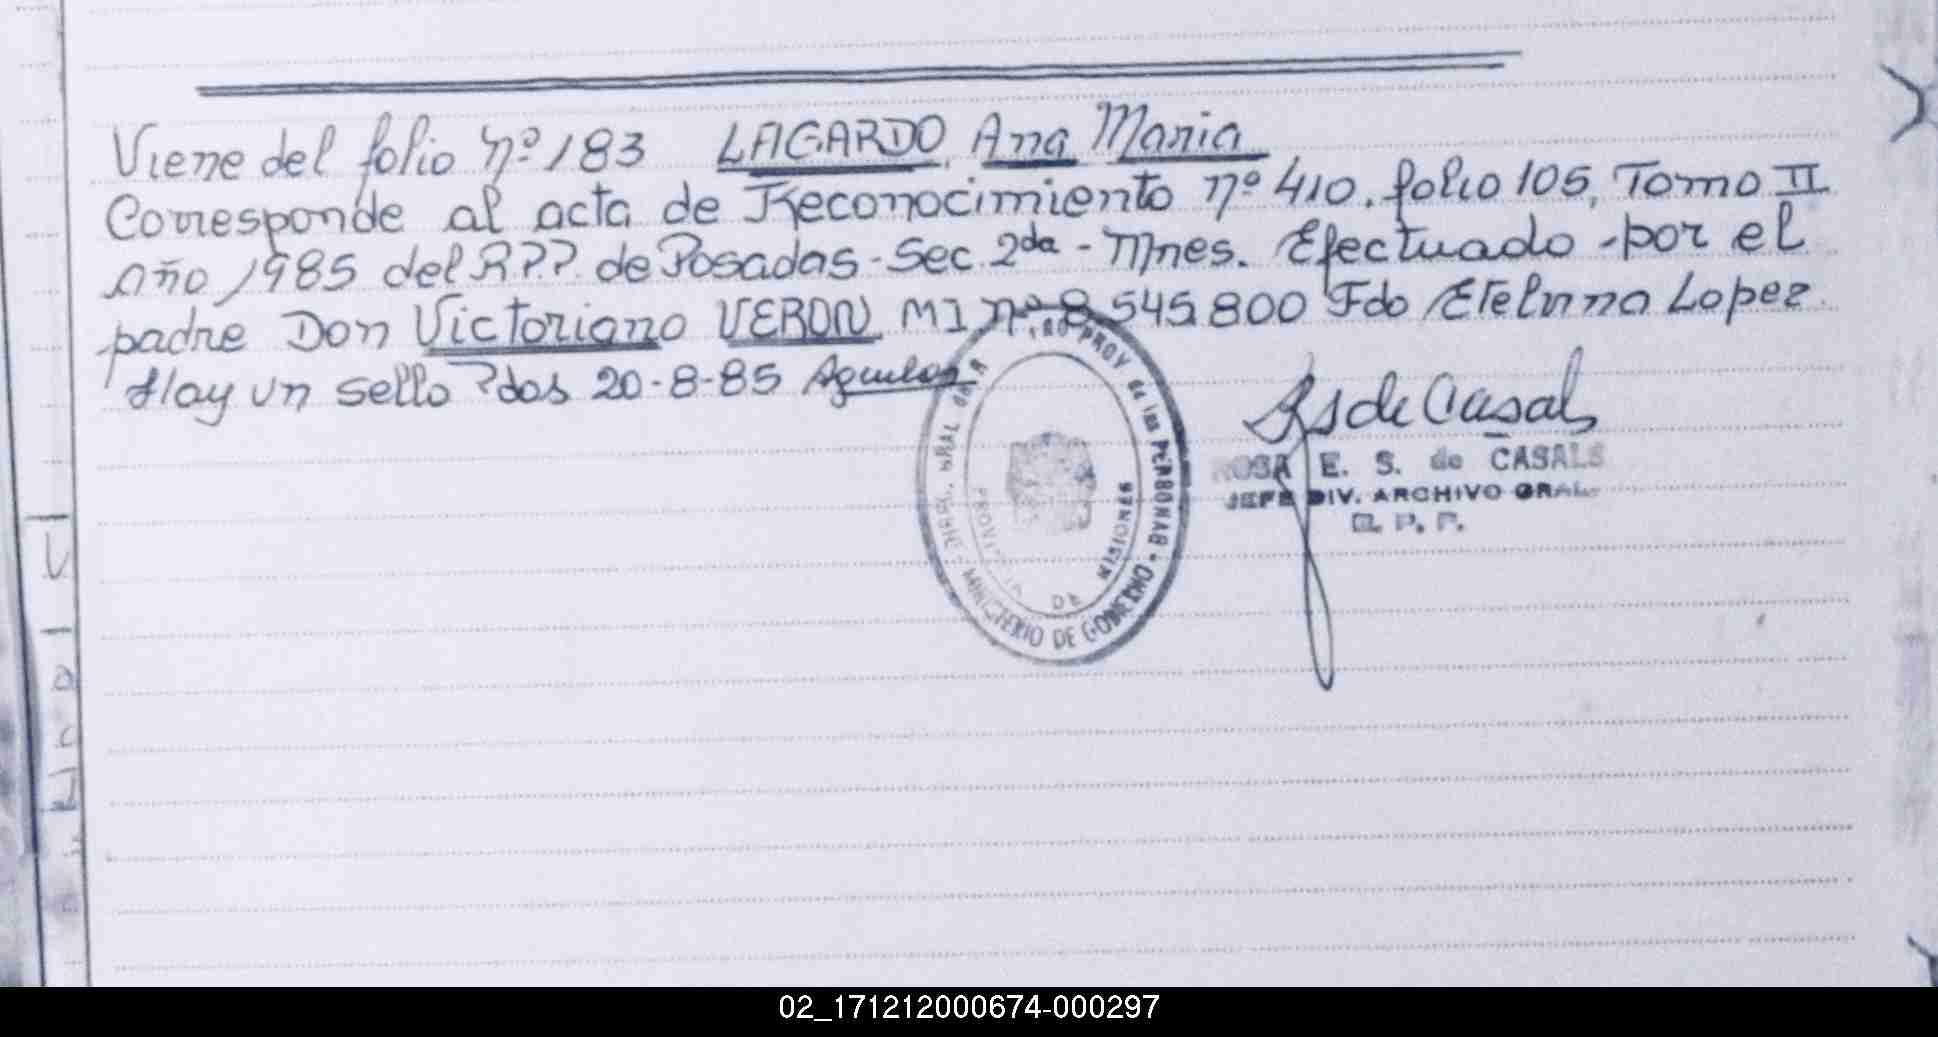 Viene del folio nº 183 LAGARDO, Ana Maria
Corresponde al acta de Reconocimiento nº 410, folio 105, Tomo II
Año 1985 del RPP. de Posadas - Sec. 2da - Mnes. Efectuado por el
padre Don Victoriano VERON MI nº 8.545.800 Fdo Etelvina Lopez.
Hay un sello Pdas 20-8-85
RS de Casals
ROSA E. S. de CASALS
JEFE DIV. ARCHIVO GRAL.
R. P. P.
PROV. de las PERSONAS - MINISTERIO DE GOBIERNO
PROVINCIA DE MISIONES
02_171212000674-000297